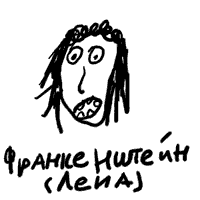 Франкенштейн
(Лена)